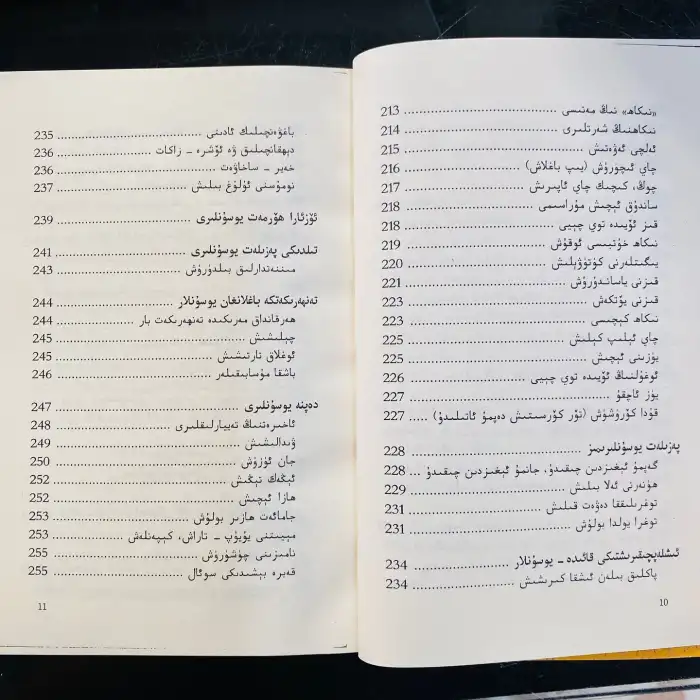 «نىكاھ» نىڭ مەنىسى ........ 213
نىكاھنىڭ شەرتلىرى ........ 214
ئەلچى ئەۋەتىش ........ 215
چاي ئىچۈرۈش (يىپ باغلاش) ........ 216
چوڭ، كىچىك چاي ئاپىرىش ........ 217
ساندۇق ئېچىش مۇراسىمى ........ 218
قىز ئۆيىدە توي چېيى ........ 218
نىكاھ خۇتبىسى ئوقۇش ........ 219
يىگىتلەرنى كۈتۈۋېلىش ........ 220
قىزنى ياساندۇرۇش ........ 221
قىزنى يۆتكەش ........ 223
نىكاھ كېچىسى ........ 223
چاي ئېلىپ كېلىش ........ 225
يۈزىنى ئېچىش ........ 225
ئوغۇلنىڭ ئۆيىدە توي چېيى ........ 226
يۈز ئاچقۇ ........ 227
قۇدا كۆرۈشۈش (تۆر كۆرسىتىش دەپمۇ ئاتىلىدۇ) ..... 227
پەزىلەت يوسۇنلىرىمىز ........ 228
گەپمۇ ئېغىزدىن چىقىدۇ، جانمۇ ئېغىزدىن چىقىدۇ ... 228
ھۈنەرنى ئەلا بىلىش ........ 229
توغرىلىققا دەۋەت قىلىش ........ 231
توغرا يولدا بولۇش ........ 231
ئىشلەپچىقىرىشتىكى قائىدە - يوسۇنلار ........ 234
پاكلىق بىلەن ئىشقا كىرىشىش ........ 234
10
باغۋەنچىلىك ئادىتى ........ 235
دېھقانچىلىق ۋە ئۆشرە - زاكات ........ 236
خەير - ساخاۋەت ........ 236
نومۇسنى ئۇلۇغ بىلىش ........ 237
ئۆزئارا ھۆرمەت يوسۇنلىرى ........ 239
تىلدىكى پەزىلەت يوسۇنلىرى ........ 241
مىننەتدارلىق بىلدۈرۈش ........ 243
تەنھەرىكەتكە باغلانغان يوسۇنلار ........ 244
ھەرقانداق مەرىكىدە تەنھەرىكەت بار ........ 244
چېلىشىش ........ 245
ئوغلاق تارتىشىش ........ 245
باشقا مۇسابىقىلەر ........ 246
دەپنە يوسۇنلىرى ........ 247
ئاخىرەتنىڭ تەييارلىقلىرى ........ 248
ۋىدالىشىش ........ 249
جان ئۈزۈش ........ 250
ئېڭەك تېڭىش ........ 252
ھازا ئېچىش ........ 252
جامائەت ھازىر بولۇش ........ 253
مېيىتنى يۇيۇپ - تاراش، كېپەنلەش ........ 253
نامىزىنى چۈشۈرۈش ........ 255
قەبرە بېشىدىكى سوئال ........ 255
11